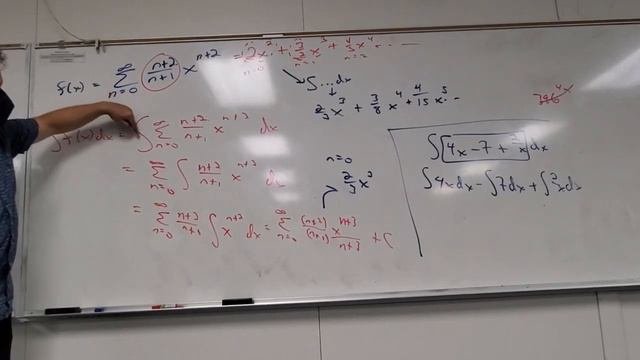 f(x) = ∑_{n=0}^{∞} (n+2)/(n+1) x^{n+2} = 2x² + 3/2 x³ + 4/3 x⁴ ...
n=0 n=1 n=2
∫...dx
↓
2/3 x³ + 3/8 x⁴ + 4/15 x⁵ ...
∫f(x)dx = ∫ ∑_{n=0}^{∞} (n+2)/(n+1) x^{n+2} dx
= ∑_{n=0}^{∞} ∫ (n+2)/(n+1) x^{n+2} dx
n=0
2/3 x³
= ∑_{n=0}^{∞} (n+3)/(n+1) ∫ x^{n+2} dx = ∑_{n=0}^{∞} (n+2)/(n+1) x^{n+3}/(n+3) + C
∫ 4x - 7 + 2/x dx
∫4x dx - ∫7dx + ∫2/x dx